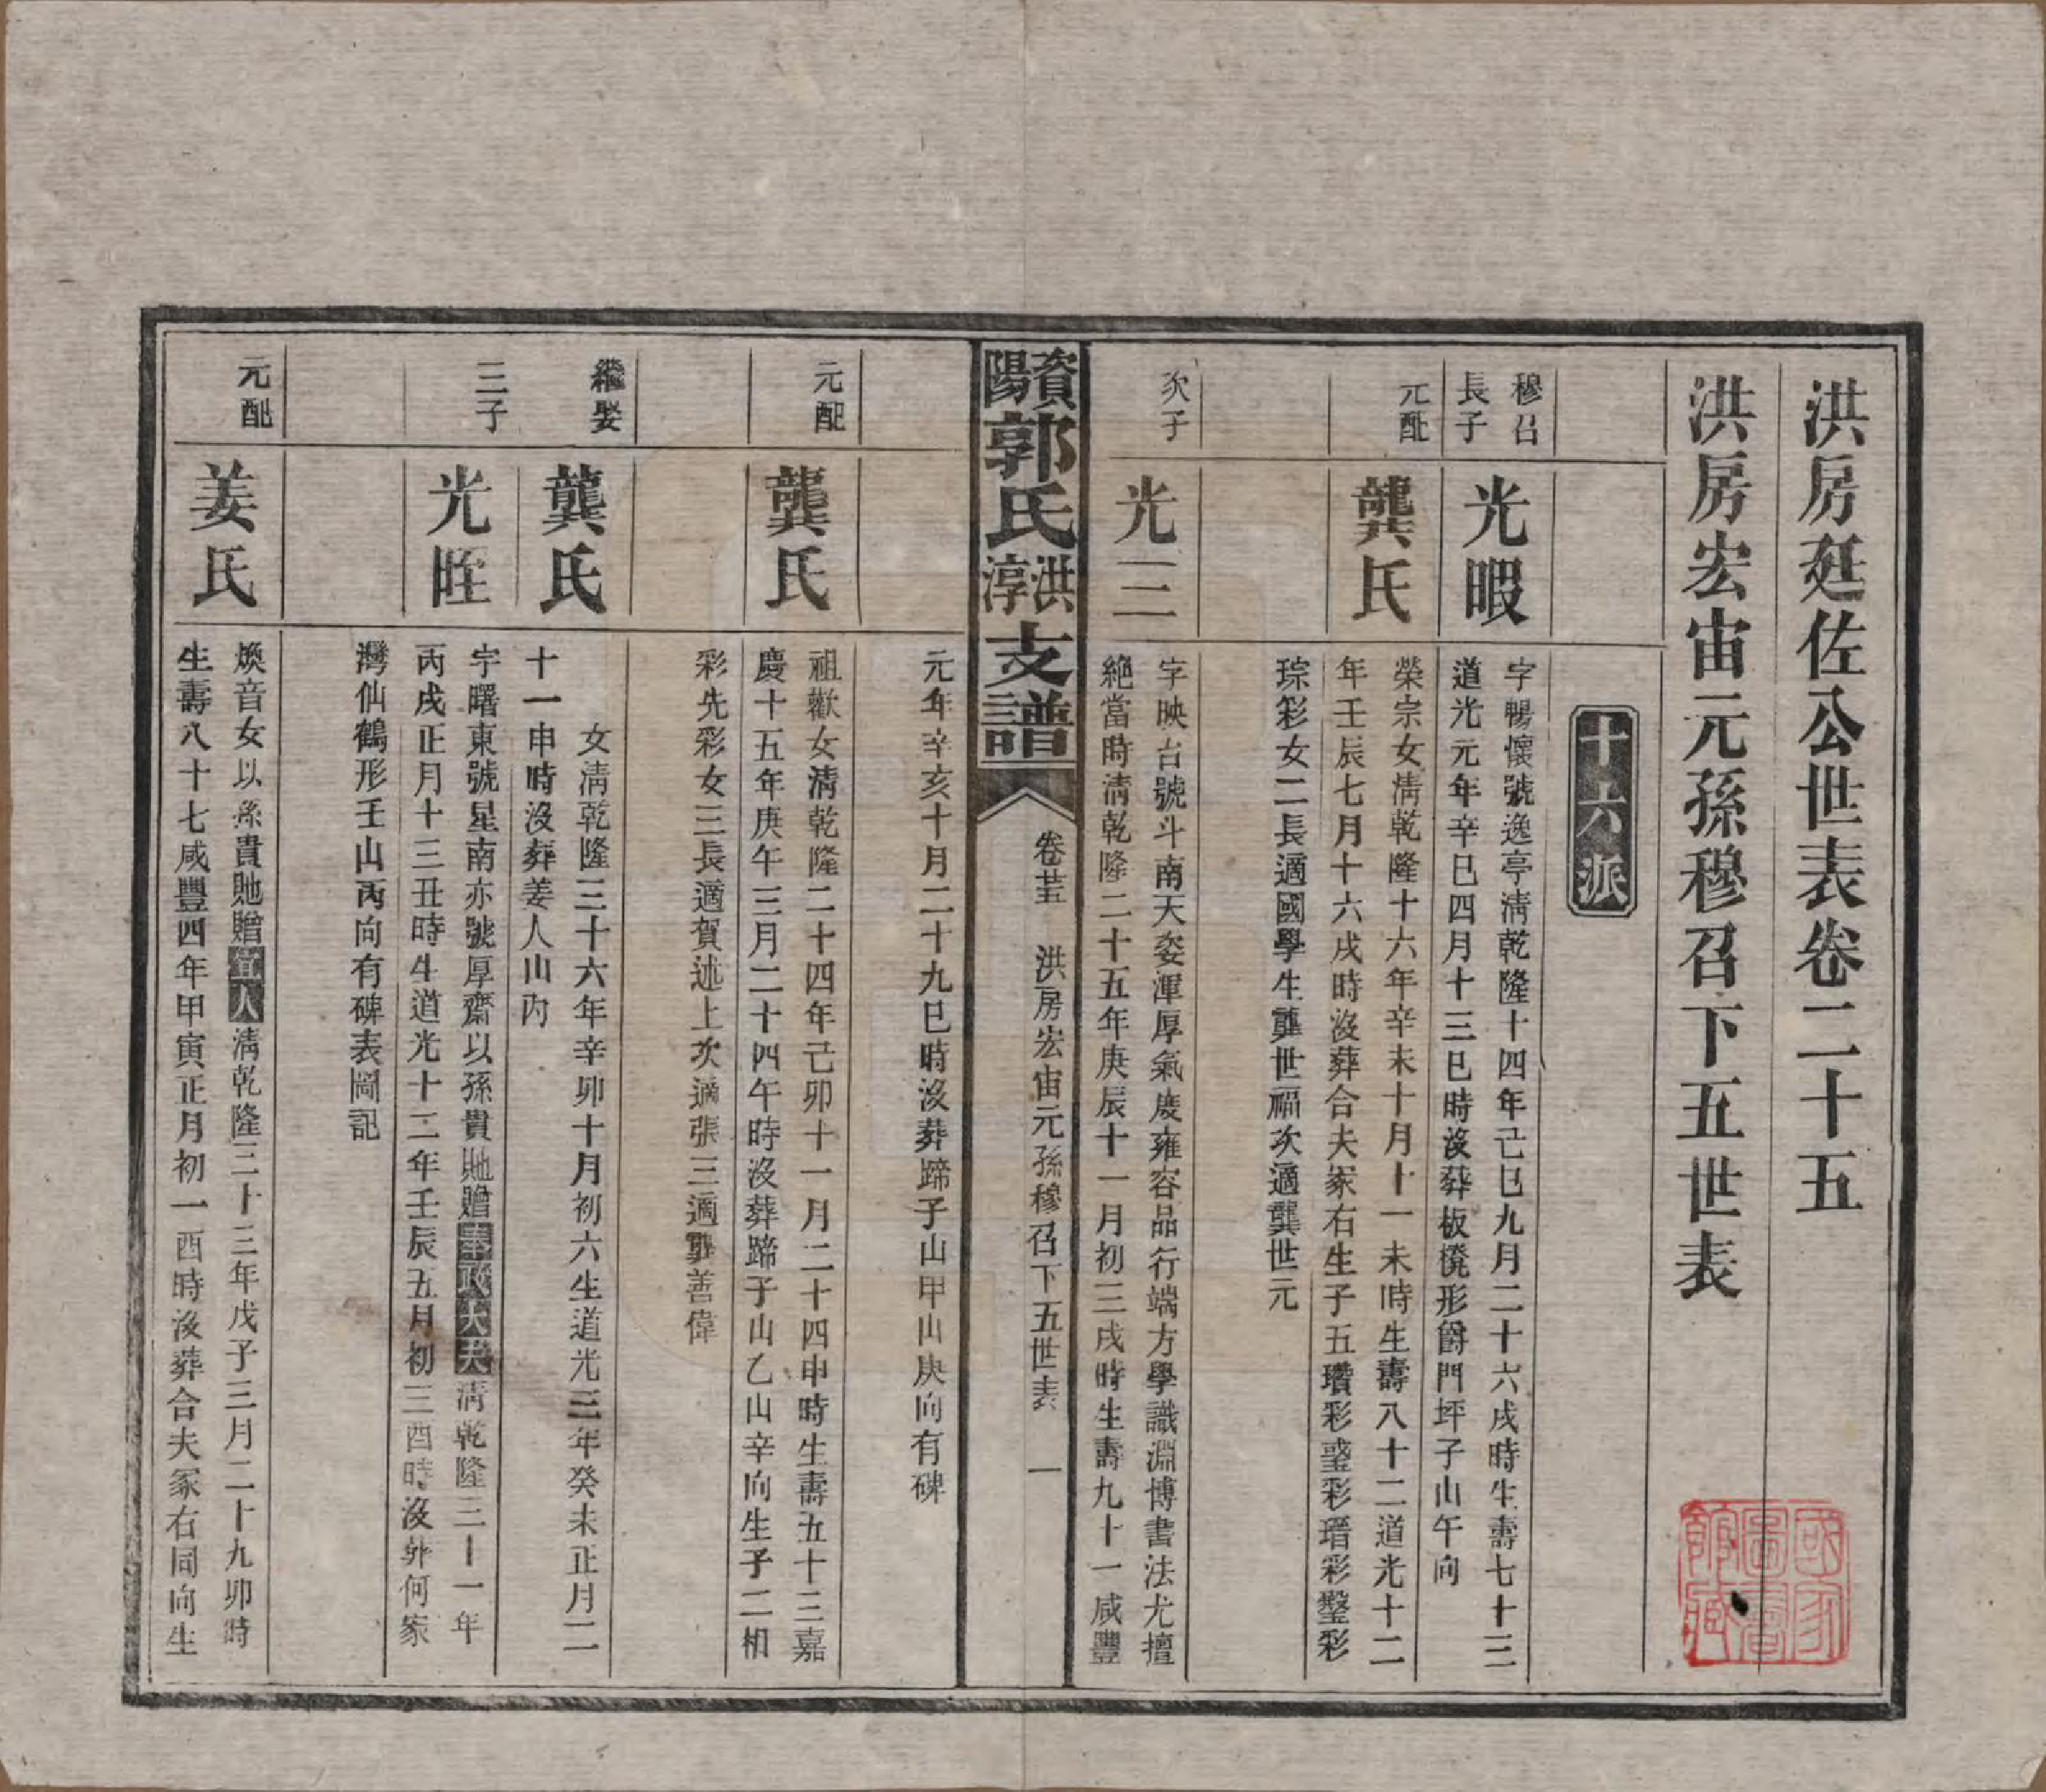 洪房廷佐公世表卷二十五
洪房宏宙元孫穆召下五世表
十六派
穆召
長子
光暇
字暢懷號逸亭清乾隆十四年己巳九月二十六戌時生壽七十三
道光元年辛巳四月十三巳時沒葬板凳形爵門坪子山午向
元配
龔氏
榮宗女清乾隆十六年辛未十月十一未時生壽八十二道光十二
年壬辰七月十六戌時沒葬合夫冢右生子五瓚彩瑬彩瑨彩璧彩
琮彩女二長適國學生龔世福次適龔世元
次子
光二
字映台號斗南天姿渾厚氣度雍容品行端方學識淵博書法尤擅
絕當時清乾隆二十五年庚辰十一月初三戌時生壽九十一咸豐
資陽郭氏洪淳支譜
卷廿五
洪房宏宙元孫穆召下五世表
一
元年辛亥十月二十九巳時沒葬蹄子山甲山庚向有碑
元配
龔氏
祖歡女清乾隆二十四年己卯十一月二十四申時生壽五十三嘉
慶十五年庚午三月二十四午時沒葬蹄子山乙山辛向生子二相
彩先彩女三長適賀述上次適張三適龔善偉
繼娶
龔氏
女清乾隆三十六年辛卯十月初六生道光三年癸未正月二
十一申時沒葬姜人山內
三子
光晊
字曙東號星南亦號厚齋以孫貴貤贈奉政大夫清乾隆三十一年
丙戌正月十三丑時生道光十二年壬辰五月初三酉時沒葬何家
灣仙鶴形壬山丙向有碑表圖記
元配
姜氏
煥音女以孫貴貤贈宜人清乾隆三十三年戊子三月二十九卯時
生壽八十七咸豐四年甲寅正月初一酉時沒葬合夫冢右同向生
國家圖書館藏